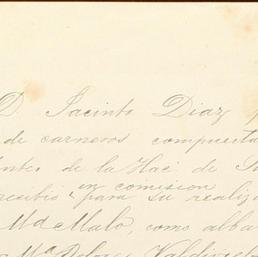 D. Jacinto Diaz
de carneros compuesta
de la Haci de
en comision
para su realiz
Ma Malo, como alba
Ma Dolores Valdivie